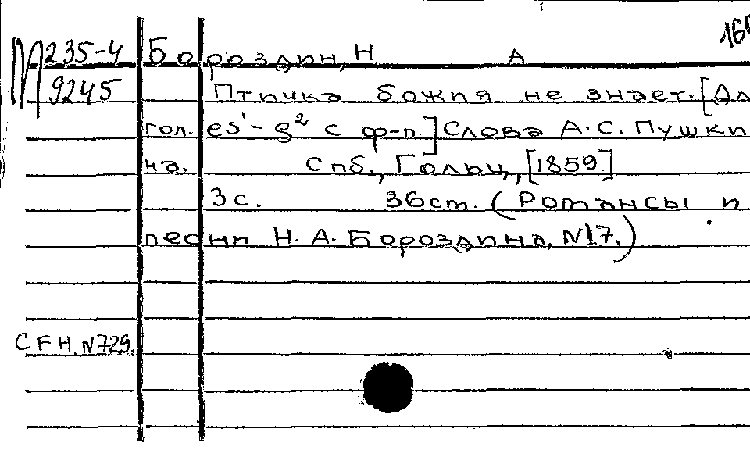 160
М 235-4 Бороздин, Н А
9245 Птичка божия не знает. [Дл
гол. es'-g² с ф-п.] Слова А.С. Пушки
на. Спб., Гольц, [1859]
3с. 36ст. (Романсы и
песни Н.А. Бороздина, N17.)
CFH. N729.